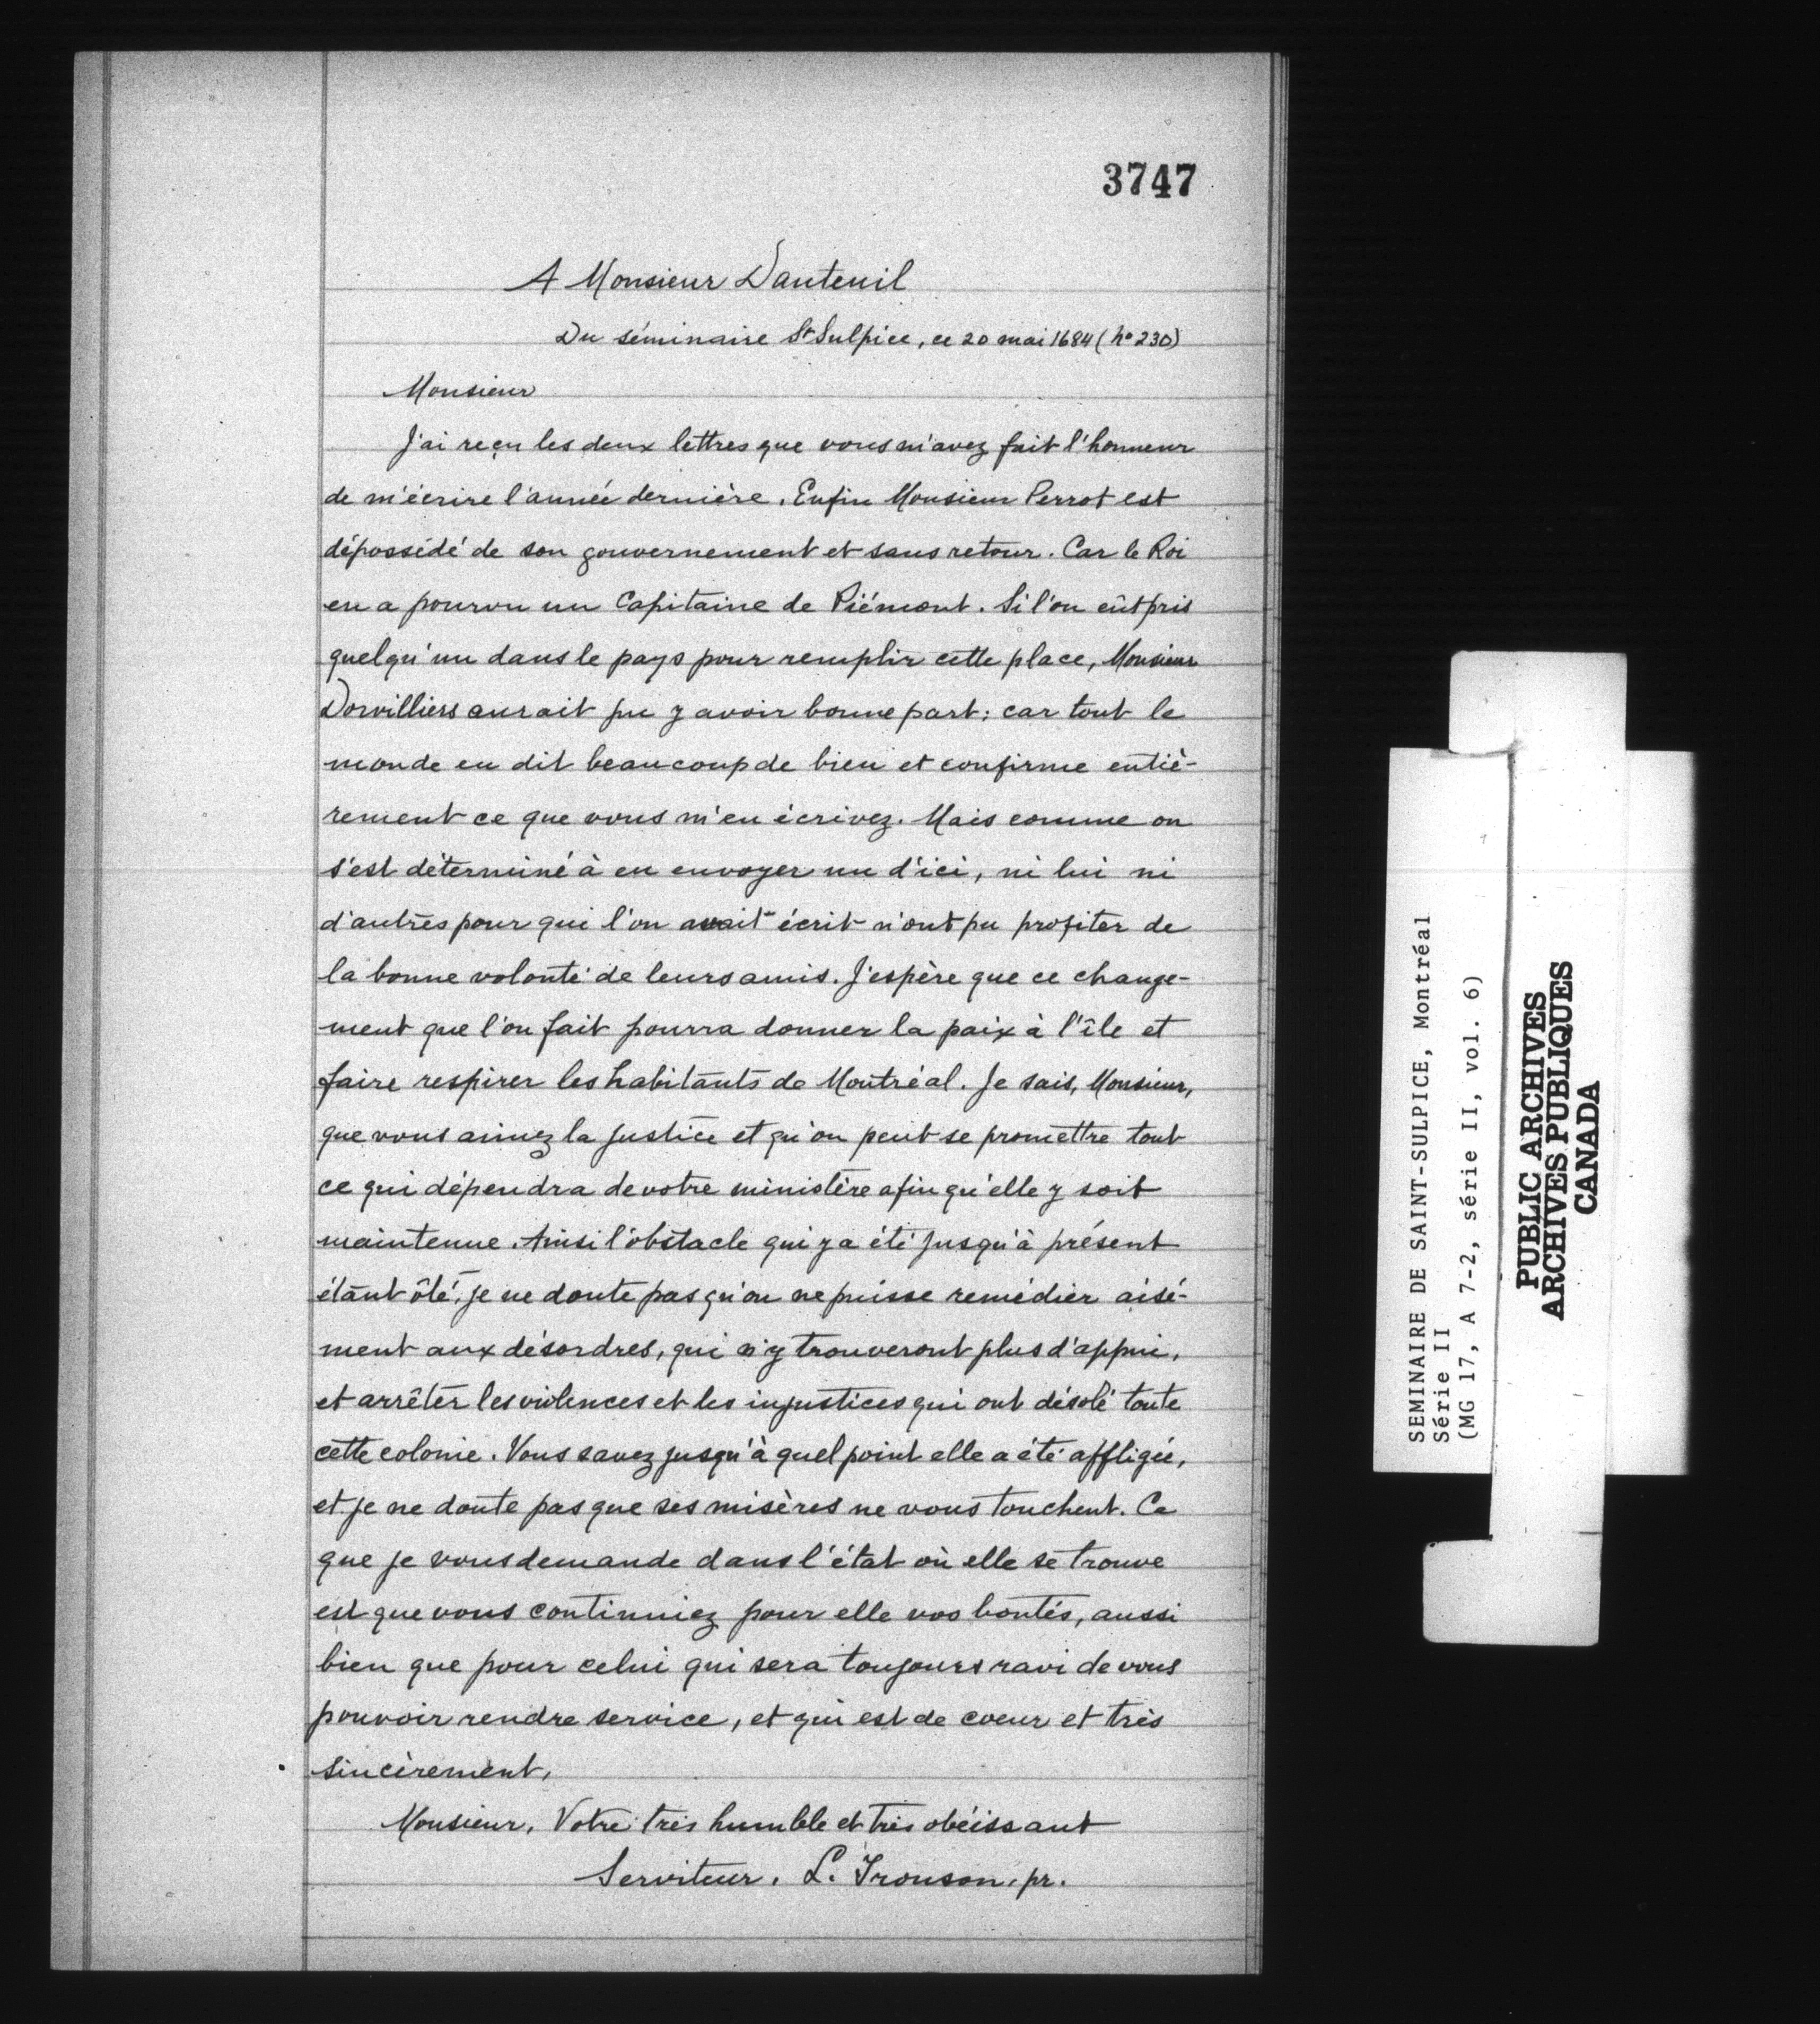 3747
A Monsieur Dauteuil
Du séminaire St Sulpice, ce 20 mai 1684 (no 230)
Monsieur
J'ai reçu les deux lettres que vous m'avez fait l'honneur
de m'écrire l'année dernière. Enfin Monsieur Perrot est
dépossédé de son gouvernement et sans retour. Car le Roi
en a pourvu un Capitaine de Piémont. Si l'on eût pris
quelqu'un dans le pays pour remplir cette place, Monsieur
Dorvilliers aurait pu y avoir bonne part; car tout le
monde en dit beaucoup de bien et confirme entiè-
rement ce que vous m'en écrivez. Mais comme on
s'est déterminé à en envoyer un d'ici, ni lui ni
d'autres pour qui l'on avait écrit n'ont pu profiter de
la bonne volonté de leurs amis. J'espère que ce change-
ment que l'on fait pourra donner la paix à l'île et
faire respirer les habitants de Montréal. Je sais, Monsieur,
que vous aimez la justice et qu'on peut se promettre tout
ce qui dépendra de votre ministère afin qu'elle y soit
maintenue. Ainsi l'obstacle qui y a été jusqu'à présent
étant ôté, je ne doute pas qu'on ne puisse remédier aisé-
ment aux désordres, qui n'y trouveront plus d'appui,
et arrêter les violences et les injustices qui ont désolé toute
cette colonie. Vous savez jusqu'à quel point elle a été affligée,
et je ne doute pas que ses misères ne vous touchent. Ce
que je vous demande dans l'état où elle se trouve
est que vous continuiez pour elle vos bontés, aussi
bien que pour celui qui sera toujours ravi de vous
pouvoir rendre service, et qui est de coeur et très
sincèrement,
Monsieur, Votre très humble et très obéissant
Serviteur. L. Tronson, pr.
SEMINAIRE DE SAINT-SULPICE, Montréal
Série II
(MG 17, A 7-2, série II, vol. 6)
PUBLIC ARCHIVES
ARCHIVES PUBLIQUES
CANADA